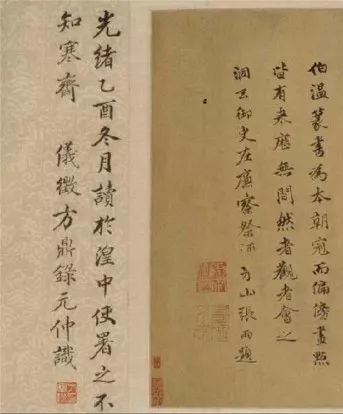 伯温篆書為本朝冠而偏傍畫點
皆有來歷無間然者觀者會之
洞天御史在廣察祭酒方山張雨題
光緒乙酉冬月讀於湟中使署之不
知寒齋 儀徵方鼎錄元仲識